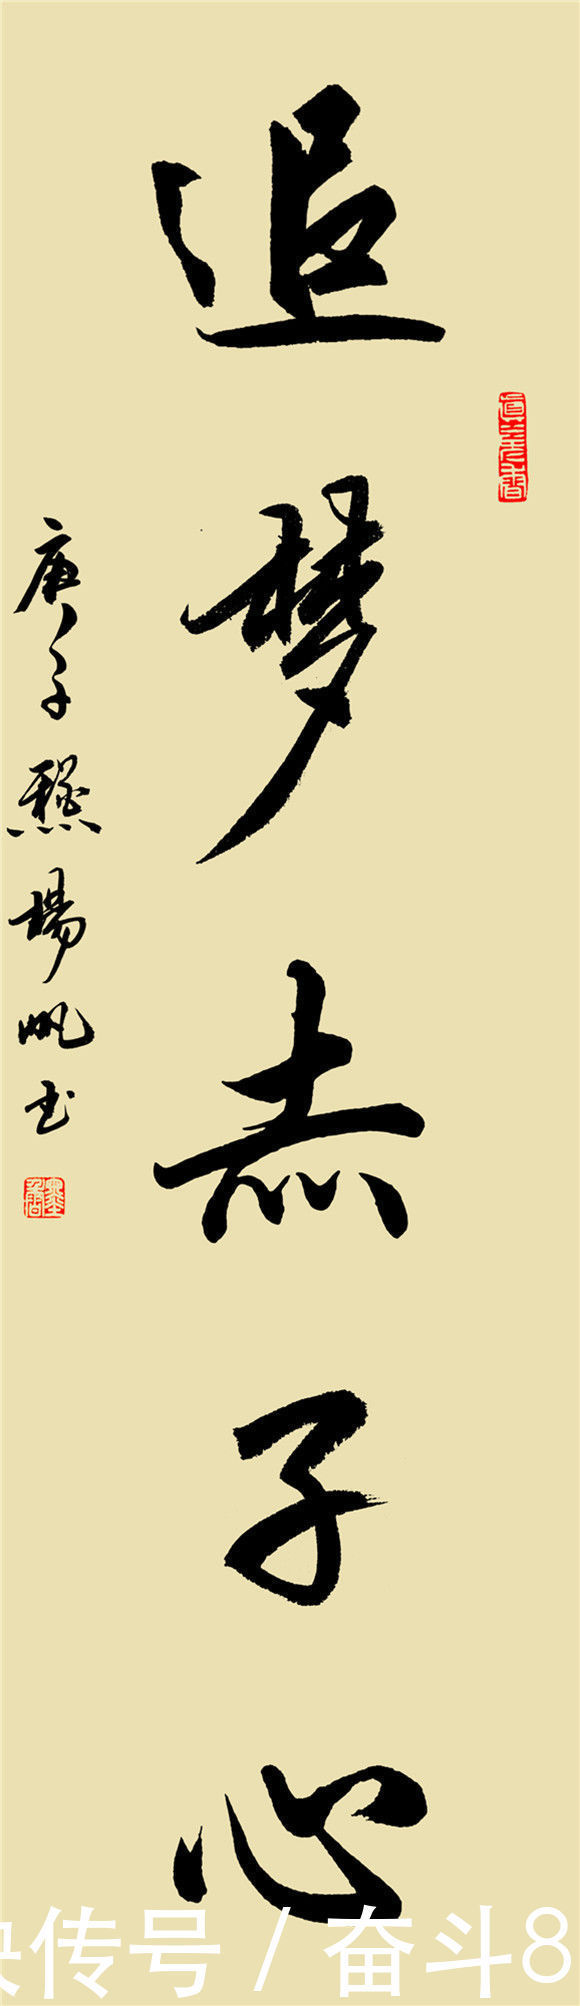 追梦赤子心
庚子 楊帆书
快传号 / 奋斗8